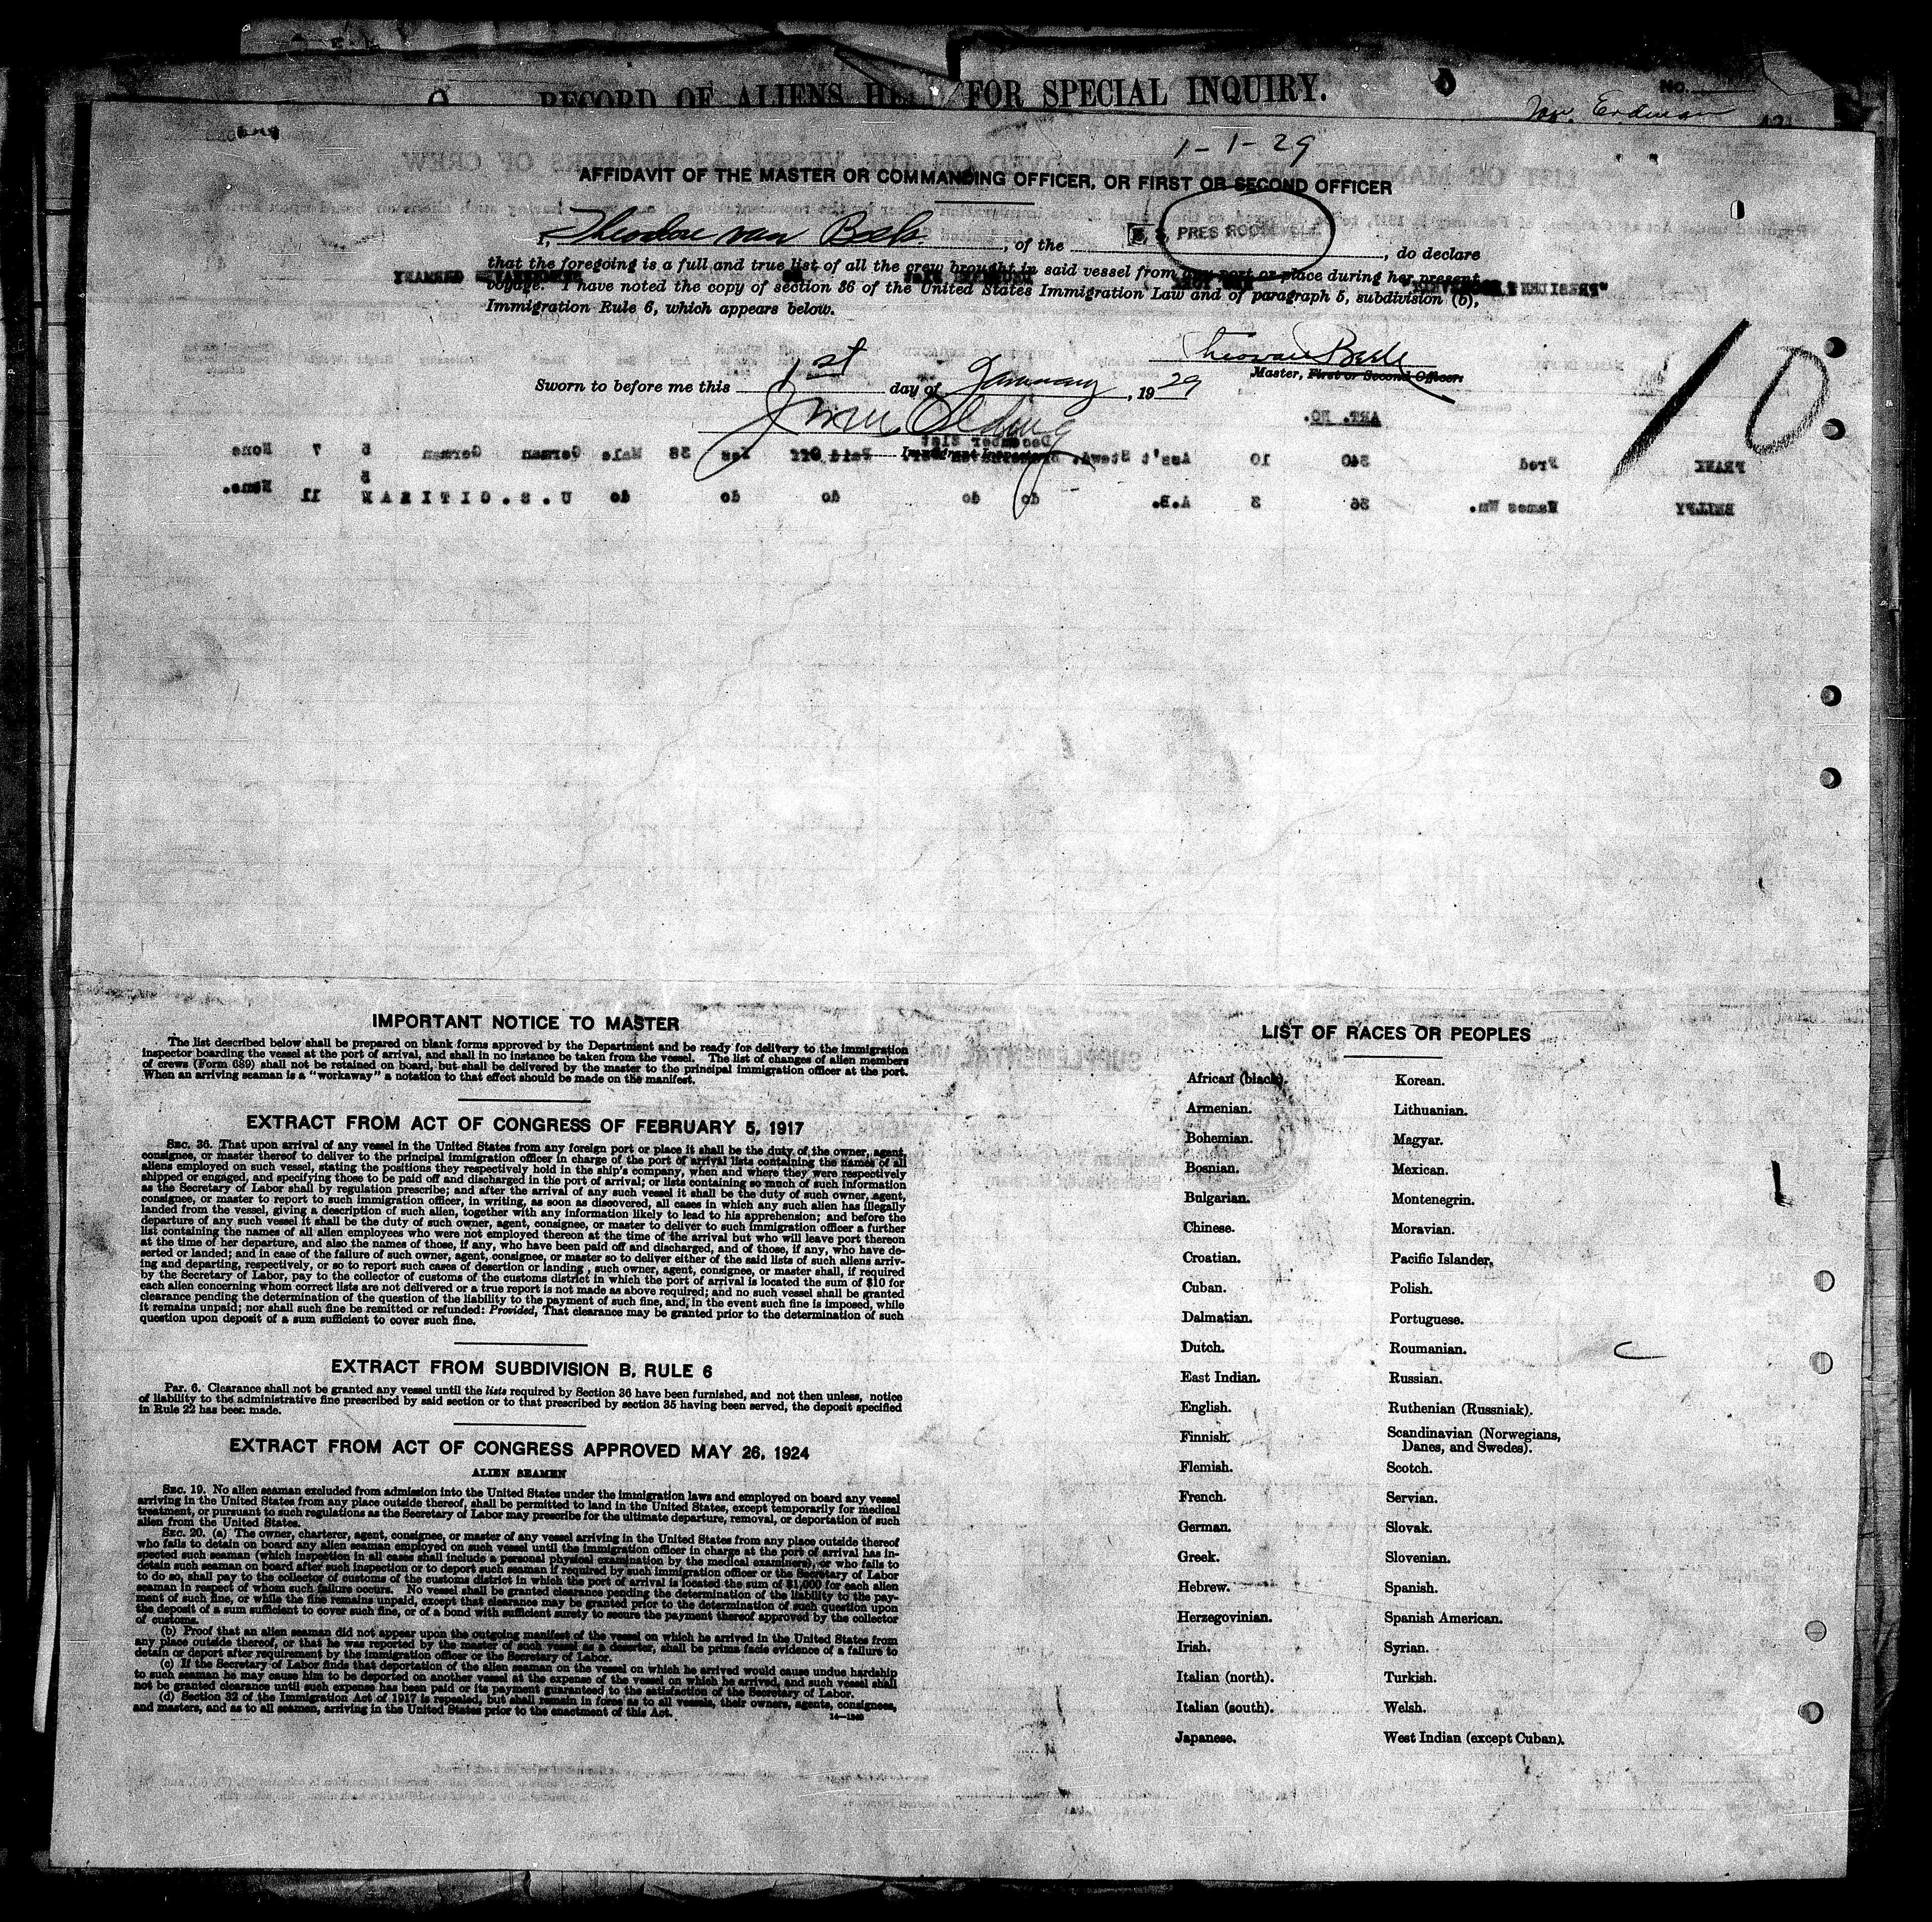 RECORD OF ALIENS HELD FOR SPECIAL INQUIRY.
No.
1-1-29
AFFIDAVIT OF THE MASTER OR COMMANDING OFFICER, OR FIRST OR SECOND OFFICER
I, Theodore van Beek, of the S. S. PRES ROOSEVELT, do declare
that the foregoing is a full and true list of all the crew brought in said vessel from any port or place during her present
voyage. I have noted the copy of section 36 of the United States Immigration Law and of paragraph 5, subdivision (b),
Immigration Rule 6, which appears below.
Theo van Beek
Master, First or Second Officer.
Sworn to before me this 1st day of January, 1929
Immigrant Inspector.
10
IMPORTANT NOTICE TO MASTER
The list described below shall be prepared on blank forms approved by the Department and be ready for delivery to the immigration
inspector boarding the vessel at the port of arrival, and shall in no instance be taken from the vessel. The list of changes of alien members
of crews (Form 689) shall not be retained on board, but shall be delivered by the master to the principal immigration officer at the port.
When an arriving seaman is a "workaway" a notation to that effect should be made on the manifest.
EXTRACT FROM ACT OF CONGRESS OF FEBRUARY 5, 1917
SEC. 36. That upon arrival of any vessel in the United States from any foreign port or place it shall be the duty of the owner, agent,
consignee, or master thereof to deliver to the principal immigration officer in charge of the port of arrival lists containing the names of all
aliens employed on such vessel, stating the positions they respectively hold in the ship's company, when and where they were respectively
shipped or engaged, and specifying those to be paid off and discharged in the port of arrival; or lists containing so much of such information
as the Secretary of Labor shall by regulation prescribe; and after the arrival of any such vessel it shall be the duty of such owner, agent,
consignee, or master to report to such immigration officer, in writing, as soon as discovered, all cases in which any such alien has illegally
landed from the vessel, giving a description of such alien, together with any information likely to lead to his apprehension; and before the
departure of any such vessel it shall be the duty of such owner, agent, consignee, or master to deliver to such immigration officer a further
list containing the names of all alien employees who were not employed thereon at the time of the arrival but who will leave port thereon
at the time of her departure, and also the names of those, if any, who have been paid off and discharged, and of those, if any, who have de-
serted or landed; and in case of the failure of such owner, agent, consignee, or master so to deliver either of the said lists of such aliens arriv-
ing and departing, respectively, or so to report such cases of desertion or landing, such owner, agent, consignee, or master shall, if required
by the Secretary of Labor, pay to the collector of customs of the customs district in which the port of arrival is located the sum of $10 for
each alien concerning whom correct lists are not delivered or a true report is not made as above required; and no such vessel shall be granted
clearance pending the determination of the question of the liability to the payment of such fine, and, in the event such fine is imposed, while
it remains unpaid; nor shall such fine be remitted or refunded: Provided, That clearance may be granted prior to the determination of such
question upon deposit of a sum sufficient to cover such fine.
EXTRACT FROM SUBDIVISION B, RULE 6
PAR. 6. Clearance shall not be granted any vessel until the lists required by Section 36 have been furnished, and not then unless, notice
of liability to the administrative fine prescribed by said section or to that prescribed by section 35 having been served, the deposit specified
in Rule 22 has been made.
EXTRACT FROM ACT OF CONGRESS APPROVED MAY 26, 1924
ALIEN SEAMEN
SEC. 19. No alien seaman excluded from admission into the United States under the immigration laws and employed on board any vessel
arriving in the United States from any place outside thereof, shall be permitted to land in the United States, except temporarily for medical
treatment, or pursuant to such regulations as the Secretary of Labor may prescribe for the ultimate departure, removal, or deportation of such
alien from the United States.
SEC. 20. (a) The owner, charterer, agent, consignee, or master of any vessel arriving in the United States from any place outside thereof
who fails to detain on board any alien seaman employed on such vessel until the immigration officer in charge at the port of arrival has in-
spected such seaman (which inspection in all cases shall include a personal physical examination by the medical examiners), or who fails to
detain such seaman on board after such inspection or to deport such seaman if required by such immigration officer or the Secretary of Labor
to do so, shall pay to the collector of customs of the customs district in which the port of arrival is located the sum of $1,000 for each alien
seaman in respect of whom such failure occurs. No vessel shall be granted clearance pending the determination of the liability to the pay-
ment of such fine, or while the fine remains unpaid, except that clearance may be granted prior to the determination of such question upon
the deposit of a sum sufficient to cover such fine, or of a bond with sufficient surety to secure the payment thereof approved by the collector
of customs.
(b) Proof that an alien seaman did not appear upon the outgoing manifest of the vessel on which he arrived in the United States from
any place outside thereof, or that he was reported by the master of such vessel as a deserter, shall be prima facie evidence of a failure to
detain or deport after requirement by the immigration officer or the Secretary of Labor.
(c) If the Secretary of Labor finds that deportation of the alien seaman on the vessel on which he arrived would cause undue hardship
to such seaman he may cause him to be deported on another vessel at the expense of the vessel on which he arrived, and such vessel shall
not be granted clearance until such expense has been paid or its payment guaranteed to the satisfaction of the Secretary of Labor.
(d) Section 32 of the Immigration Act of 1917 is repealed, but shall remain in force as to all vessels, their owners, agents, consignees,
and masters, and as to all seamen, arriving in the United States prior to the enactment of this Act.
LIST OF RACES OR PEOPLES
African (black).
Armenian.
Bohemian.
Bosnian.
Bulgarian.
Chinese.
Croatian.
Cuban.
Dalmatian.
Dutch.
East Indian.
English.
Finnish.
Flemish.
French.
German.
Greek.
Hebrew.
Herzegovinian.
Irish.
Italian (north).
Italian (south).
Japanese.
Korean.
Lithuanian.
Magyar.
Mexican.
Montenegrin.
Moravian.
Pacific Islander.
Polish.
Portuguese.
Roumanian.
Russian.
Ruthenian (Russniak).
Scandinavian (Norwegians,
Danes, and Swedes).
Scotch.
Servian.
Slovak.
Slovenian.
Spanish.
Spanish American.
Syrian.
Turkish.
Welsh.
West Indian (except Cuban).